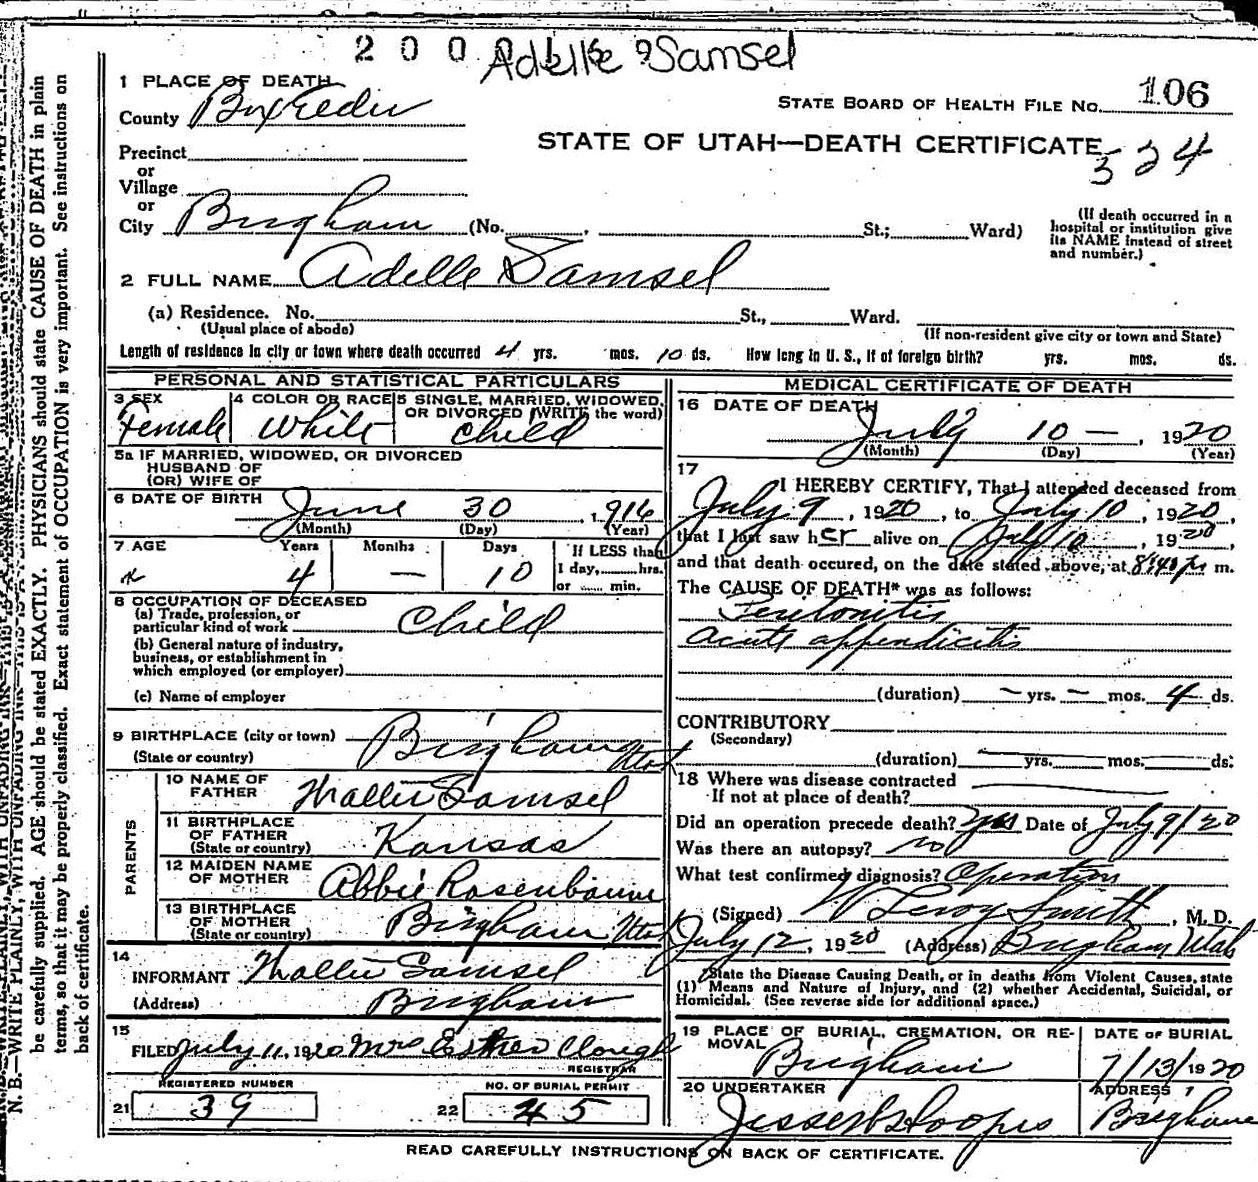 2 0 0 0 Adelle Samsel
1 PLACE OF DEATH
County Box Elder
STATE BOARD OF HEALTH FILE NO. 106
STATE OF UTAH—DEATH CERTIFICATE
324
Precinct
or
Village
or
City Brigham (No. , St.; Ward)
(If death occurred in a hospital or institution give its NAME instead of street and number.)
2 FULL NAME Adelle Samsel
(a) Residence. No. St., Ward.
(Usual place of abode) (If non-resident give city or town and State)
Length of residence in city or town where death occurred 4 yrs. mos. 10 ds. How long in U. S., if of foreign birth? yrs. mos. ds.
PERSONAL AND STATISTICAL PARTICULARS
3 SEX Female
4 COLOR OR RACE White
5 SINGLE, MARRIED, WIDOWED, OR DIVORCED (WRITE the word) Child
5a IF MARRIED, WIDOWED, OR DIVORCED
HUSBAND OF
(OR) WIFE OF
6 DATE OF BIRTH June 30, 1916
(Month) (Day) (Year)
7 AGE Years Months Days If LESS than
1 day, hrs.
or min.
4 — 10
8 OCCUPATION OF DECEASED
(a) Trade, profession, or
particular kind of work Child
(b) General nature of industry,
business, or establishment in
which employed (or employer)
(c) Name of employer
9 BIRTHPLACE (city or town) Brigham
(State or country) Utah
PARENTS
10 NAME OF
FATHER Samsel
11 BIRTHPLACE
OF FATHER
(State or country) Kansas
12 MAIDEN NAME
OF MOTHER Abbie Rosenbaum
13 BIRTHPLACE
OF MOTHER
(State or country) Brigham Utah
14
INFORMANT Samsel
(Address) Brigham
15
FILED July 11, 1920 Mrs Esther Clough
REGISTRAR
REGISTERED NUMBER
21 39
NO. OF BURIAL PERMIT
22 45
MEDICAL CERTIFICATE OF DEATH
16 DATE OF DEATH
July 10 — , 1920
(Month) (Day) (Year)
17
I HEREBY CERTIFY, That I attended deceased from
July 9, 1920, to July 10, 1920,
that I last saw her alive on July 10, 1920,
and that death occured, on the date stated above, at 8:40 p m.
The CAUSE OF DEATH* was as follows:
Peritonitis
Acute appendicitis
(duration) — yrs. — mos. 4 ds.
CONTRIBUTORY
(Secondary)
(duration) yrs. mos. ds.
18 Where was disease contracted
If not at place of death?
Did an operation precede death? Yes Date of July 9/20
Was there an autopsy? no
What test confirmed diagnosis? Operation
(Signed) W Leroy Smith, M. D.
July 12, 1920 (Address) Brigham Utah
*State the Disease Causing Death, or in deaths from Violent Causes, state
(1) Means and Nature of Injury, and (2) whether Accidental, Suicidal, or
Homicidal. (See reverse side for additional space.)
19 PLACE OF BURIAL, CREMATION, OR RE-
MOVAL Brigham
DATE OF BURIAL
7/13/1920
20 UNDERTAKER
ADDRESS
Brigham
READ CAREFULLY INSTRUCTIONS ON BACK OF CERTIFICATE.
N. B.—WRITE PLAINLY, WITH UNFADING INK
be carefully supplied. AGE should be stated EXACTLY. PHYSICIANS should state CAUSE OF DEATH in plain
terms, so that it may be properly classified. Exact statement of OCCUPATION is very important. See instructions on
back of certificate.